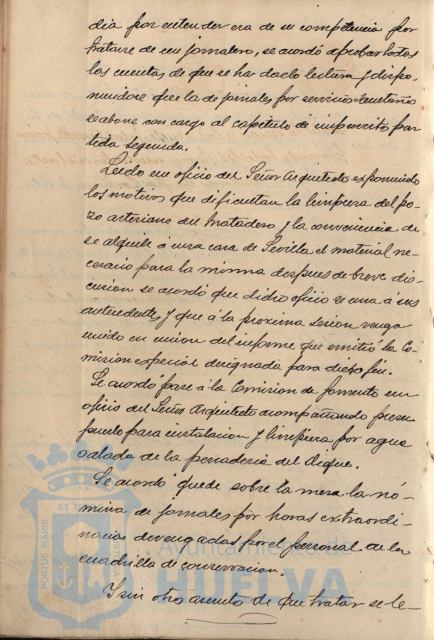 dia por entender era de su competencia por
tratarse de un jornalero, se acordó aprobar todas
las cuentas de que se ha dado lectura y dispo-
niendose que la de jornales por servicio
se abone con cargo al capitulo de imprevistos par-
tida segunda.
Leido un oficio del Señor Arquitecto exponiendo
los motivos que dificultan la limpieza del po-
zo arteriano del Matadero y la conveniencia de
se alquile á una casa de Sevilla el material ne-
cesario para la misma despues de breve dis-
cusion se acordó que dicho oficio se una á sus
antecedentes y que á la proxima sesion venga
unido en union del informe que emitió la Co-
mision especial designada para dicho fin.
Se acordo pase á la Comision de fomento un
oficio del Señor Arquitecto acompañando presu-
puesto para instalacion y limpieza por agua
salada de la pescaderia del dique.
Se acordó quede sobre la mesa la nó-
mina de jornales por horas extraordi-
narias devengadas por el personal de la
cuadrilla de conservacion.
Y sin otro asunto de que tratar se le-
Ayuntamiento de
HUELVA
PORTUS MARIS